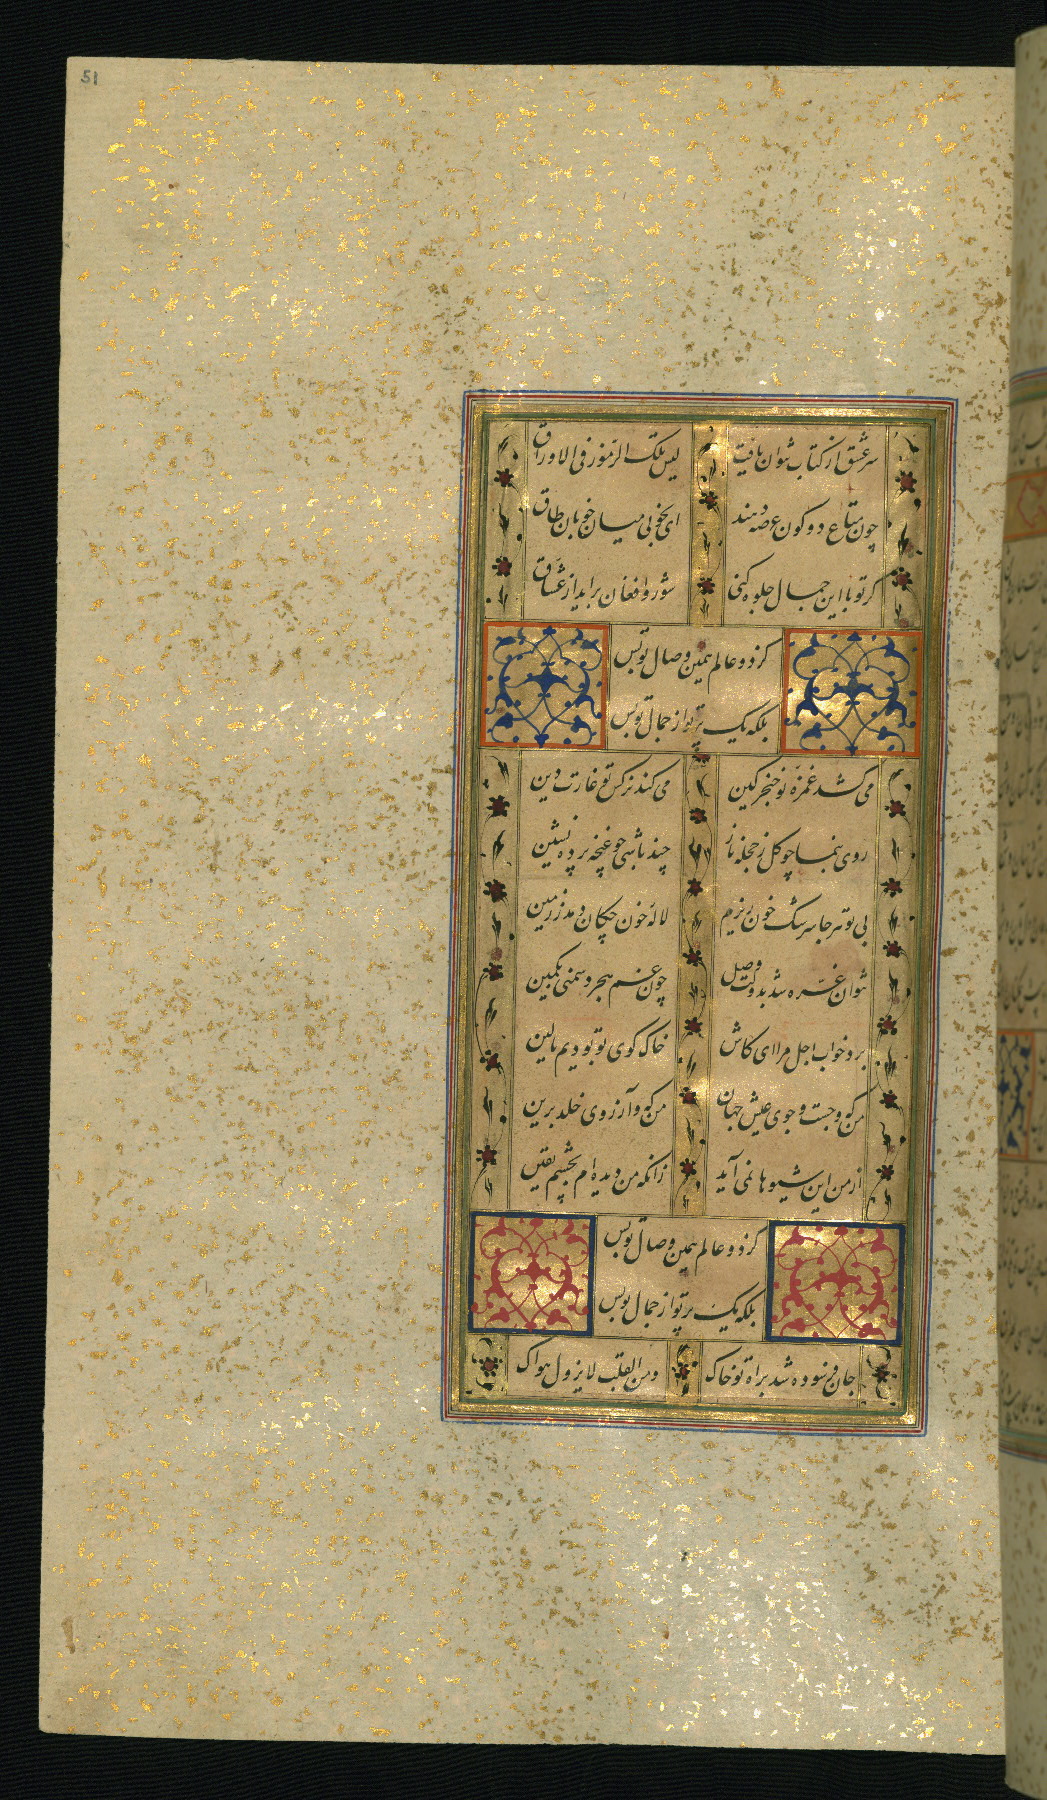 51
سر عشق از کتاب نتوان یافت
لیس تلک الرموز فی الاوراق
چون متاع دو کون عرضه دهند
ای بخوبی میان خوبان طاق
کر تو با این جمال جلوه کنی
شور و افغان براید از عشاق
کز دو عالم همین وصال تو بس
بلکه یک پرتو از جمال تو بس
می کشد غمزهٔ تو خنجر کین
می کند نرکس تو غارت دین
روی بنما چو کل ز حجله ناز
چند باشی چو غنچه پرده نشین
بی تو هر جا سرشک خون ریزم
لاله خون چکان دمد ز زمین
نتوان غره شد بدولت وصل
چون غم هجر دشمنی بکمین
برد خواب اجل مرا ای کاش
خاک کوی تو بودیم بالین
من که و جست و جوی عیش جهان
من که و آرزوی خلد برین
از من این شیوها نمی آید
زانکه من دیده ام بچشم یقین
کز دو عالم همین وصال تو بس
بلکه یک پرتو از جمال تو بس
جان فرسوده شد براه تو خاک
و من القلب لا یزول هواک